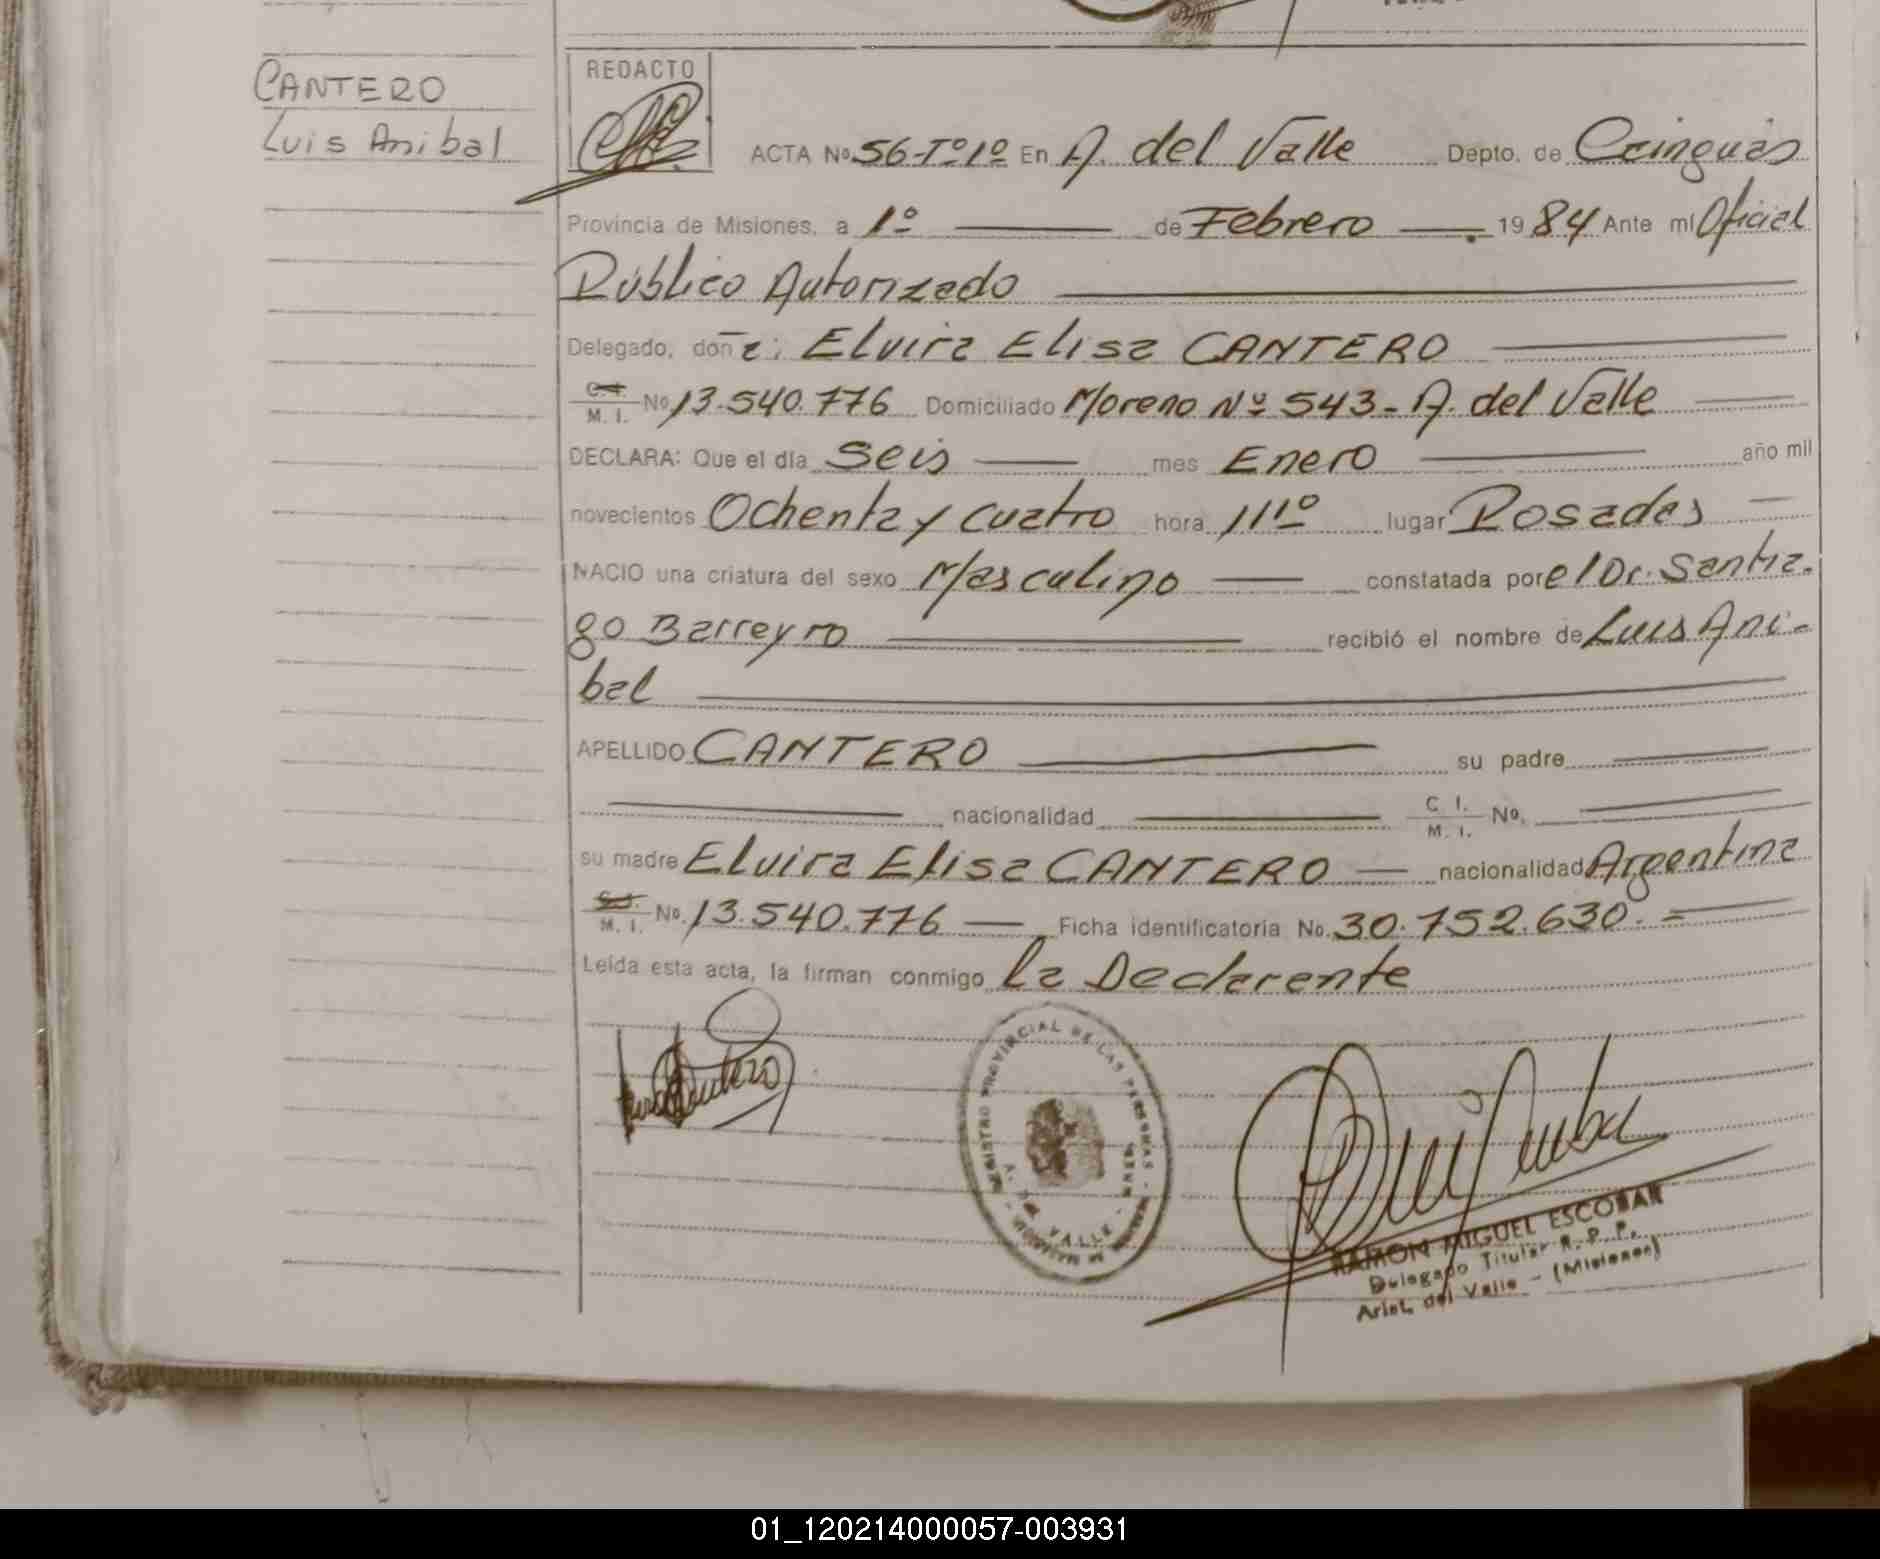 CANTERO
Luis Anibal
REDACTO
ACTA No. 56-Tº1º En A. del Valle Depto. de Cainguás
Provincia de Misiones, a 1º de Febrero 1984 Ante mí Oficial
Público Autorizado
Delegado, doña: Elvira Elisa CANTERO
C.I. M. I. No. 13.540.776 Domiciliado Moreno Nº 543- A. del Valle
DECLARA: Que el día Seis mes Enero año mil
novecientos Ochenta y cuatro hora 11¹º lugar Posadas
NACIO una criatura del sexo Masculino constatada por el Dr. Santia-
go Barreyro recibió el nombre de Luis Ani-
bal
APELLIDO CANTERO su padre
nacionalidad C. I. M. I. No.
su madre Elvira Elisa CANTERO nacionalidad Argentina
C.I. M. I. No. 13.540.776 Ficha identificatoria No. 30.752.630.=
Leída esta acta, la firman conmigo la Declarante
REGISTRO PROVINCIAL DE LAS PERSONAS
A. DEL VALLE
RAMON MIGUEL ESCOBAR
Delegado Titular R. P. P.
Arist. del Valle - (Misiones)
01_120214000057-003931